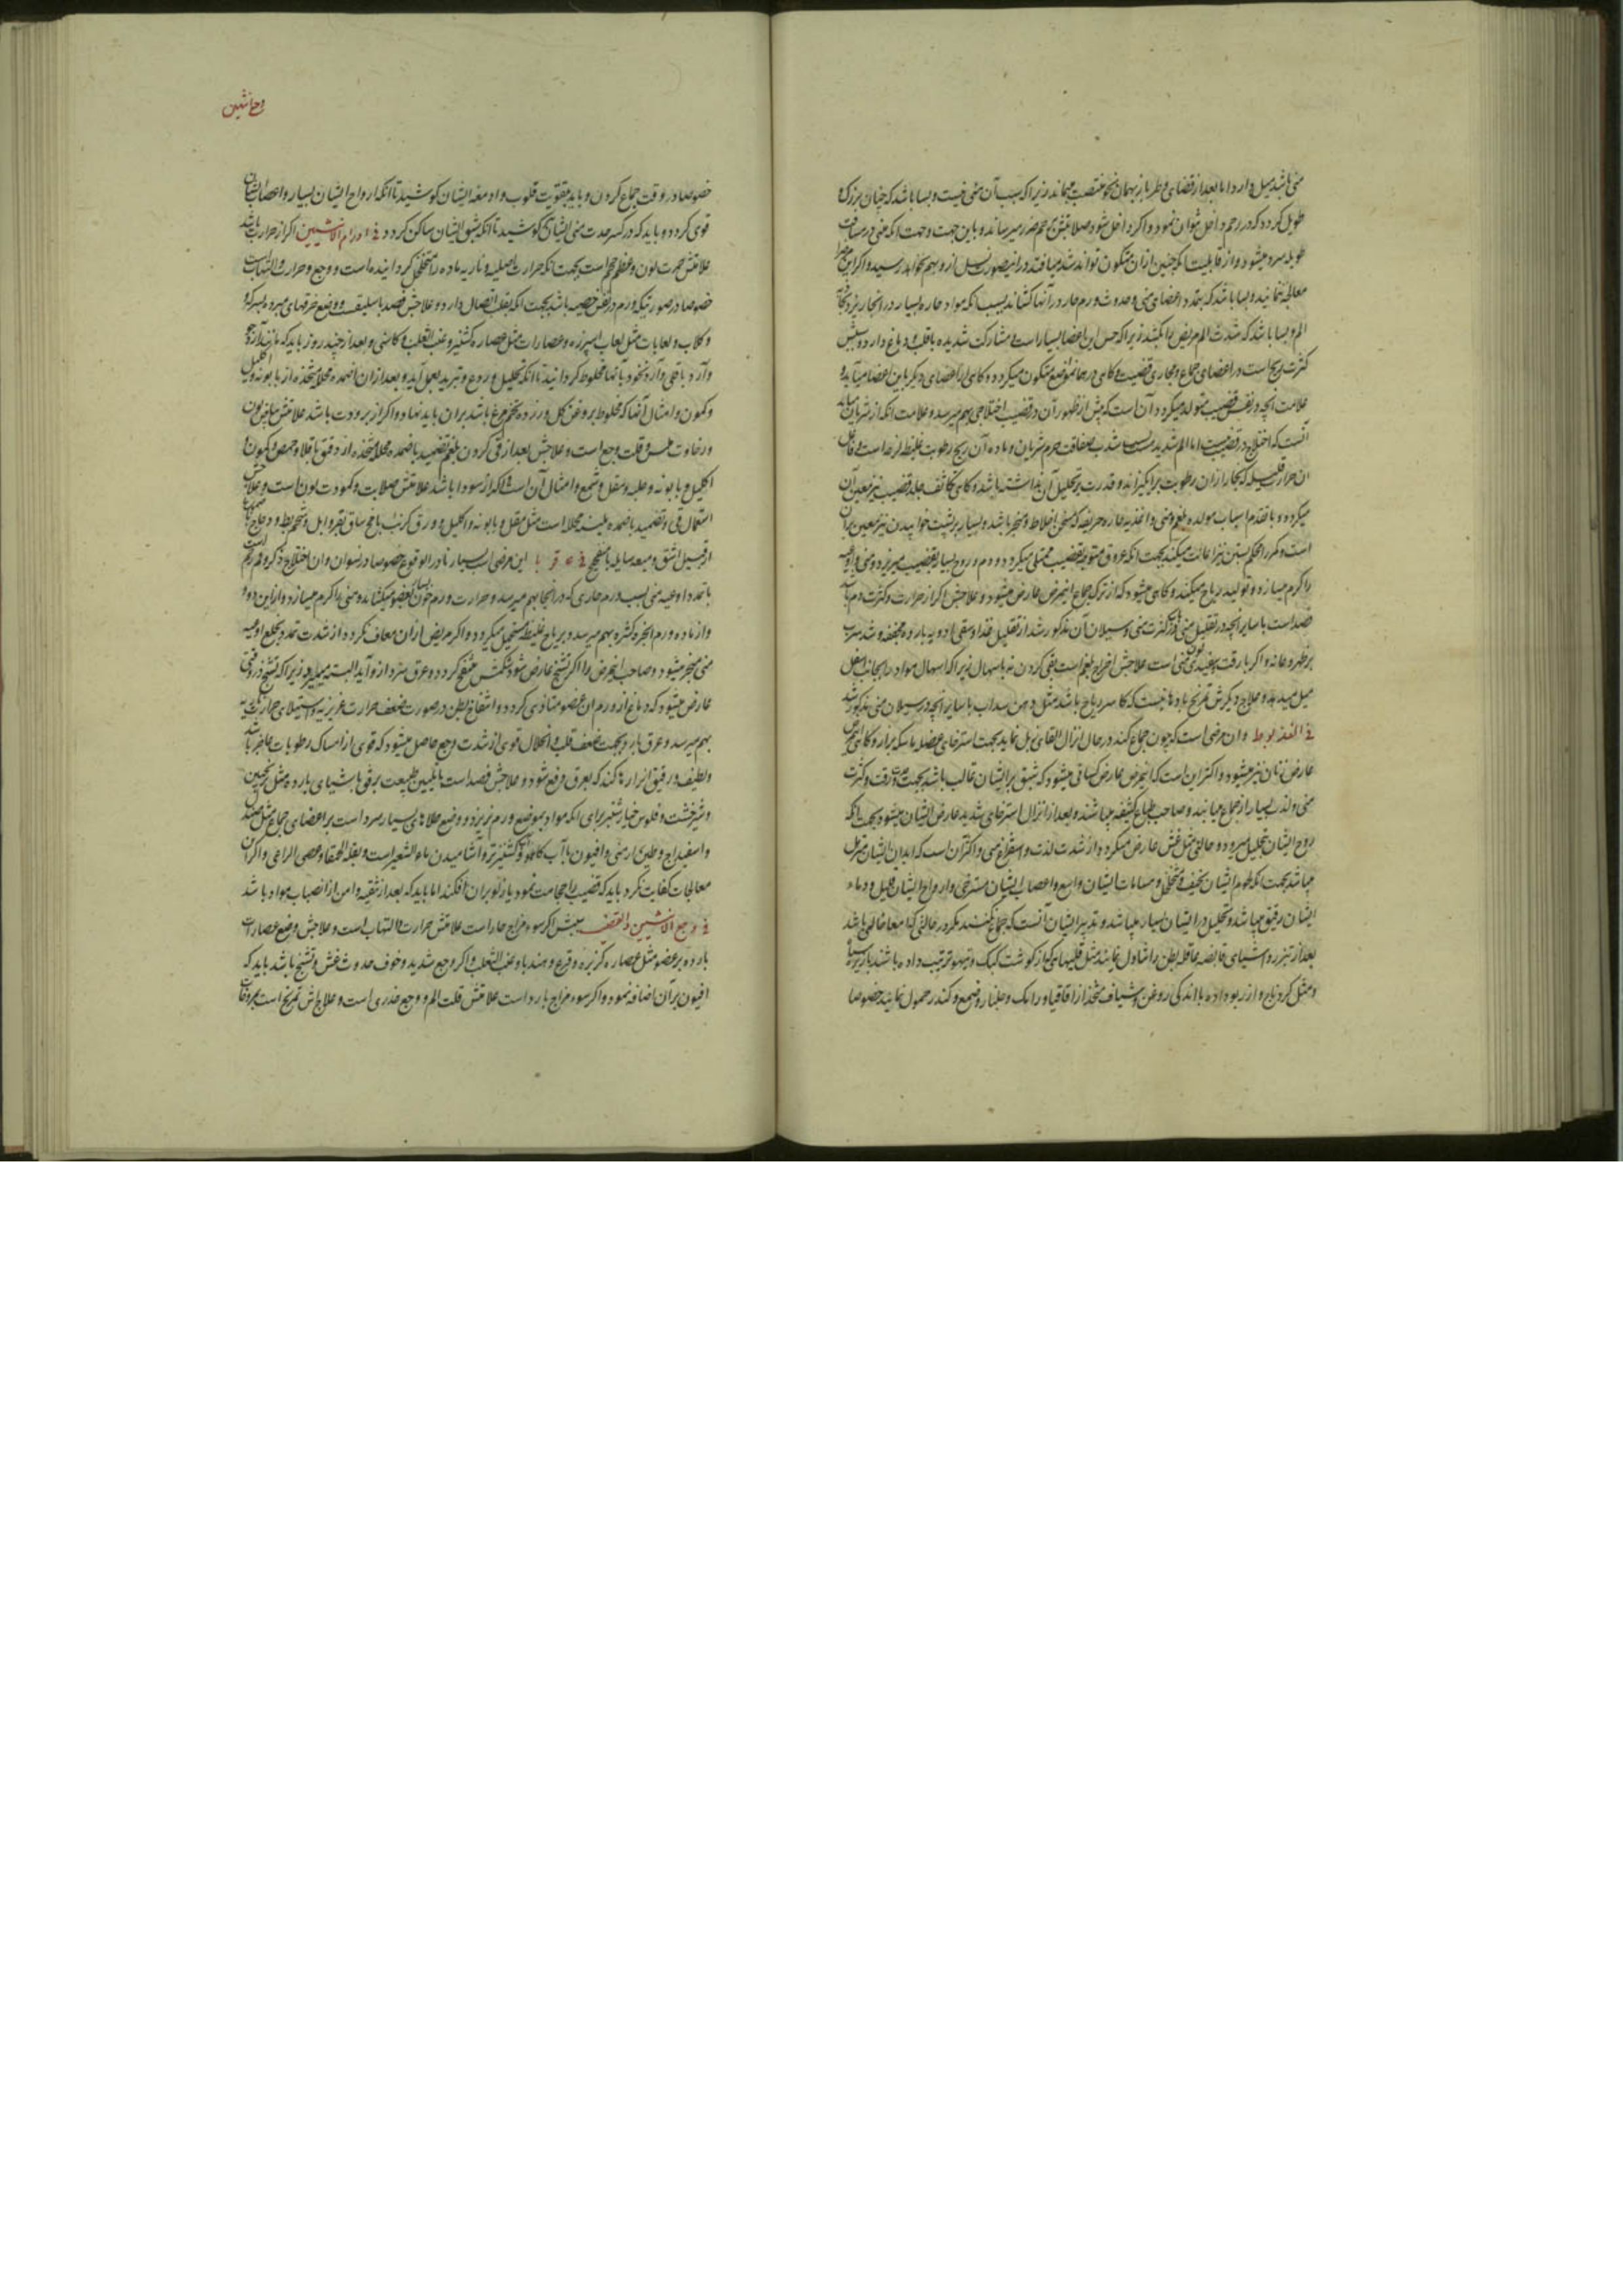 منی باشد میل دارد اما بعد از قضای وطر باز بهمان نحو منتصب میماند زیرا که سبب آن منی نیست و بسا باشد که چنان بزرک و
طویل کردد که در رحم داخل نتوان نمود و اکر داخل شود صلابتش بجرم رحم ضرر میرساند و باین جهت و جهت آنکه منی در مسافت
طویله سرد میشود و از قابلیت آنکه جنین از آن متکون تواند شد میافتد در این صورت نسل از او بهم نخواهد رسید و اکر این مرض را
معالجه ننمایند و بسا باشد که بتمدد اعضای منی و حدوث ورم حار در آنها کشاند بسبب آنکه مواد حاره بسیار در آنجا ریزد بجهة
الم و بسا باشد که شدت الم مریض را بکشد زیرا که حس این اعضا بسیار است و مشارکت شدیده با قلب و دماغ دارد و سببش
کثرت ریح است در اعضای جماع و مجاری قضیب و کاهی در همان موضع متکون میکردد و کاهی از اعضای دیکر باین اعضا میآید و
علامت آنچه در نفس قضیب متولد میکردد آن است که پیش از ظهور آن در قضیب اختلاجی بهم میرسد و علامت آنکه از شریان میآید
آنست که اختلاج در قضیب نیست اما الم شدید است بسبب صفاقت جرم شریان و ماده آن ریح رطوبت غلیظ لزجه است و فاعل
ان حرارت قلیله که بخار از ان رطوبت برانکیزاند و قدرت بر تحلیل آن نداشته باشد و کاهی تکاثف جلد قضیب نیز معین آن
میکردد و با تقدم اسباب مولده بلغم و منی و اغذیه حاره حریفه که مسخن اخلاط و مبخر باشد و بسیار بر پشت خوابیدن نیز معین بر آن
است و کمر را محکم بستن نیز اعانت میکند بجهت آنکه عروق متوجه بقضیب ممتلی میکردد و دم و روح بسیار بقضیب میریزد و منی و اوعیه
را کرم میسازد و تولید ریاح میکند و کاهی میشود که از ترک جماع این مرض عارض میشود و علاجش اکر از حرارت و کثرت دم باشد
فصد است با سایر آنچه در تقلیل منی و در کثرت منی و سیلان آن مذکور شد از تقلیل غذا و سقی ادویه بارده مجففه و شد سرب
بر ظهر و عانه و اکر با رقت و سفیدی لون منی است علاجش اخراج بلغم است بقی کردن نه باسهال زیرا که اسهال مواد را بجانب اسفل
میل میدهد و علاج دیکرش تمریخ بادهانیست که کاسر ریاح باشد مثل دهن سداب با سایر آنچه در سیلان منی مذکور شد
فی العذیوط و ان مرضی است که چون جماع کند در حال انزال القای زبل نماید بجهت استرخای عضله ماسکه براز و کاهی این مرض
عارض زنان نیز میشود و اکثر این است که این مرض عارض کسانی میشود که شبق بر ایشان غالب باشد بجهت حدت و رقت و کثرت
منی و لذت بسیار از جماع میابند و صاحب طباع کثیفه میباشند و بعد از انزال استرخای شدید عارض ایشان میشود بجهت آنکه
روح ایشان تحلیل میرود و حالتی مثل غش عارض میکردد از شدت لذت و استفراغ منی و اکثر آن است که ابدان ایشان متزیل
میباشد بجهت آنکه لحوم ایشان نحیف و متخلخل و مسامات ایشان واسع و اعصاب ایشان مسترخی و ارواح ایشان قلیل و دماء
ایشان رقیق میباشد و تحلیل در ایشان بسیار میباشد و تدبیر ایشان آنست که جماع نکنند مکر در حالتی که امعا خالی باشد
بعد از تبرز و اشیای قابضه عاقله بطن را تناول نمایند مثل قلیهای که از کوشت کبک و تیهو ترتیب داده باشند
و مثل کرونباج و از ربوه داده با اندکی روغن و شیاف متخذ از اقاقیا و رامک و جلنار و صمغ و کندر حمول نمایند خصوصا
خصوصا در وقت جماع کردن و باید بتقویت قلوب و ادمغه ایشان کوشید تا آنکه ارواح ایشان بسیار و اعصاب ایشان
قوی کردد و باید که در کسر حدت منی ایشان کوشید تا آنکه شبق ایشان ساکن کردد فی اورام الانثیین اکر از حرارت باشد
علامتش حمرت لون و عظم حجم است بجهت آنکه حرارت اصلیه و ناریه ماده را متخلخل کردانیده است و وجع و حرارت و التهاب
خصوصا در صورتیکه ورم در نفس خصیه باشد بجهت آنکه بقلب اتصال دارد و علاجش فصد باسلیق و وضع خرقهای مبرده بسرکه
و کلاب و لعابات مثل لعاب اسپرزه و عصارات مثل عصاره کشنیز و عنب الثعلب و کاسنی و بعد از چند روز باید که مانند آرد جو
و آرد باقلی و آرد نخود بآنها مخلوط کردانید تا آنکه تحلیل و ردع و تبرید بعمل آید و بعد از ان اضمده محلله متخذه از بابونه و اکلیل
و کمون و امثال آنها که مخلوط بروغن کل و زرده تخم مرغ باشد بر ان باید نهاد و اکر از برودت باشد علامتش بیاض لون
و رخاوت ملمس و قلت وجع است و علاجش بعد از قی کردن بلغم تضمید باضمده محلله متخذه از دقیق باقلا و حمص و کمون
اکلیل و بابونه و حلبه و مقل و شمع و امثال آن است و اکر از سودا باشد علامتش صلابت و کمودت لون است و علاجش
استعمال قی و تضمید باضمده ملینه محلله است مثل مقل و بابونه و اکلیل و ورق کرنب با مخ ساق بقر و ابل و شحم بط و دجاج و صمغها
از قبیل اشق و میعه سایله با میفختج فی این مرضی است بسیار نادر الوقوع خصوصا در نسوان و ان اختلاج ذکر و فم رحم است
با تمدد اوعیه منی بسبب ورم حاری که در آنجا بهم میرسد و حرارت ورم خون را بعضو میکشاند و منی را کرم میسازد و از این دو
و از ماده ورم ابخره کثیره بهم میرسد و بریاح غلیظ مستحیل میکردد و اکر مریض از آن معاف نکردد از شدت تمدد بخلع اوعیه
منی منجر میشود و صاحب این مرض را اکر تشنج عارض شود و شکمش منتفخ کردد و عرق سرد از او آید البته میمیرد زیرا که تشنج در وقتی
عارض میشود که دماغ از ورم ان عضو متاذی کردد و انتفاخ بطن در صورت ضعف حرارت غریزیه و استیلای حرارت غریبه
بهم میرسد و عرق بارد بجهت ضعف قلب و انحلال قوی از شدت وجع حاصل میشود که قوی از امساک رطوبات عاجز باشد
و لطیف و رقیق انرا رها کند که بعرق دفع شود و علاجش فصد است با تلیین طبیعت برفق باشیای بارده مثل ترنجبین
و شیرخشت و فلوس خیارشنبر برای آنکه مواد بموضع ورم نریزد و وضع طلاهای بسیار سرد است بر اعضای جماع مثل صندل
و اسفیداج و طین ارمنی و افیون با آب کاهو و کشنیز تر و آشامیدن ماء الشعیر است و بقلة الحمقا و عصی الراعی و اکر این
معالجات کفایت نکرد باید که قضیب را حجامت نمود یا زلو بر ان افکند اما باید که بعد از تنقیه و امن از انصباب مواد باشد
فی وجع الانثیین و القضیب سببش اکر سوء مزاج حار است علامتش حرارت و التهاب است و علاجش وضع عصارات
بارده بر عضو مثل عصاره کزبره و قرع و هندبا و عنب الثعلب و اکر وجع شدید و خوف حدوث غش و تشنج باشد باید که
افیون بر آن اضافه نمود و اکر سوء مزاج بارد است علامتش قلت الم و وجع خدری است و علاجش تمریخ است بعروقات